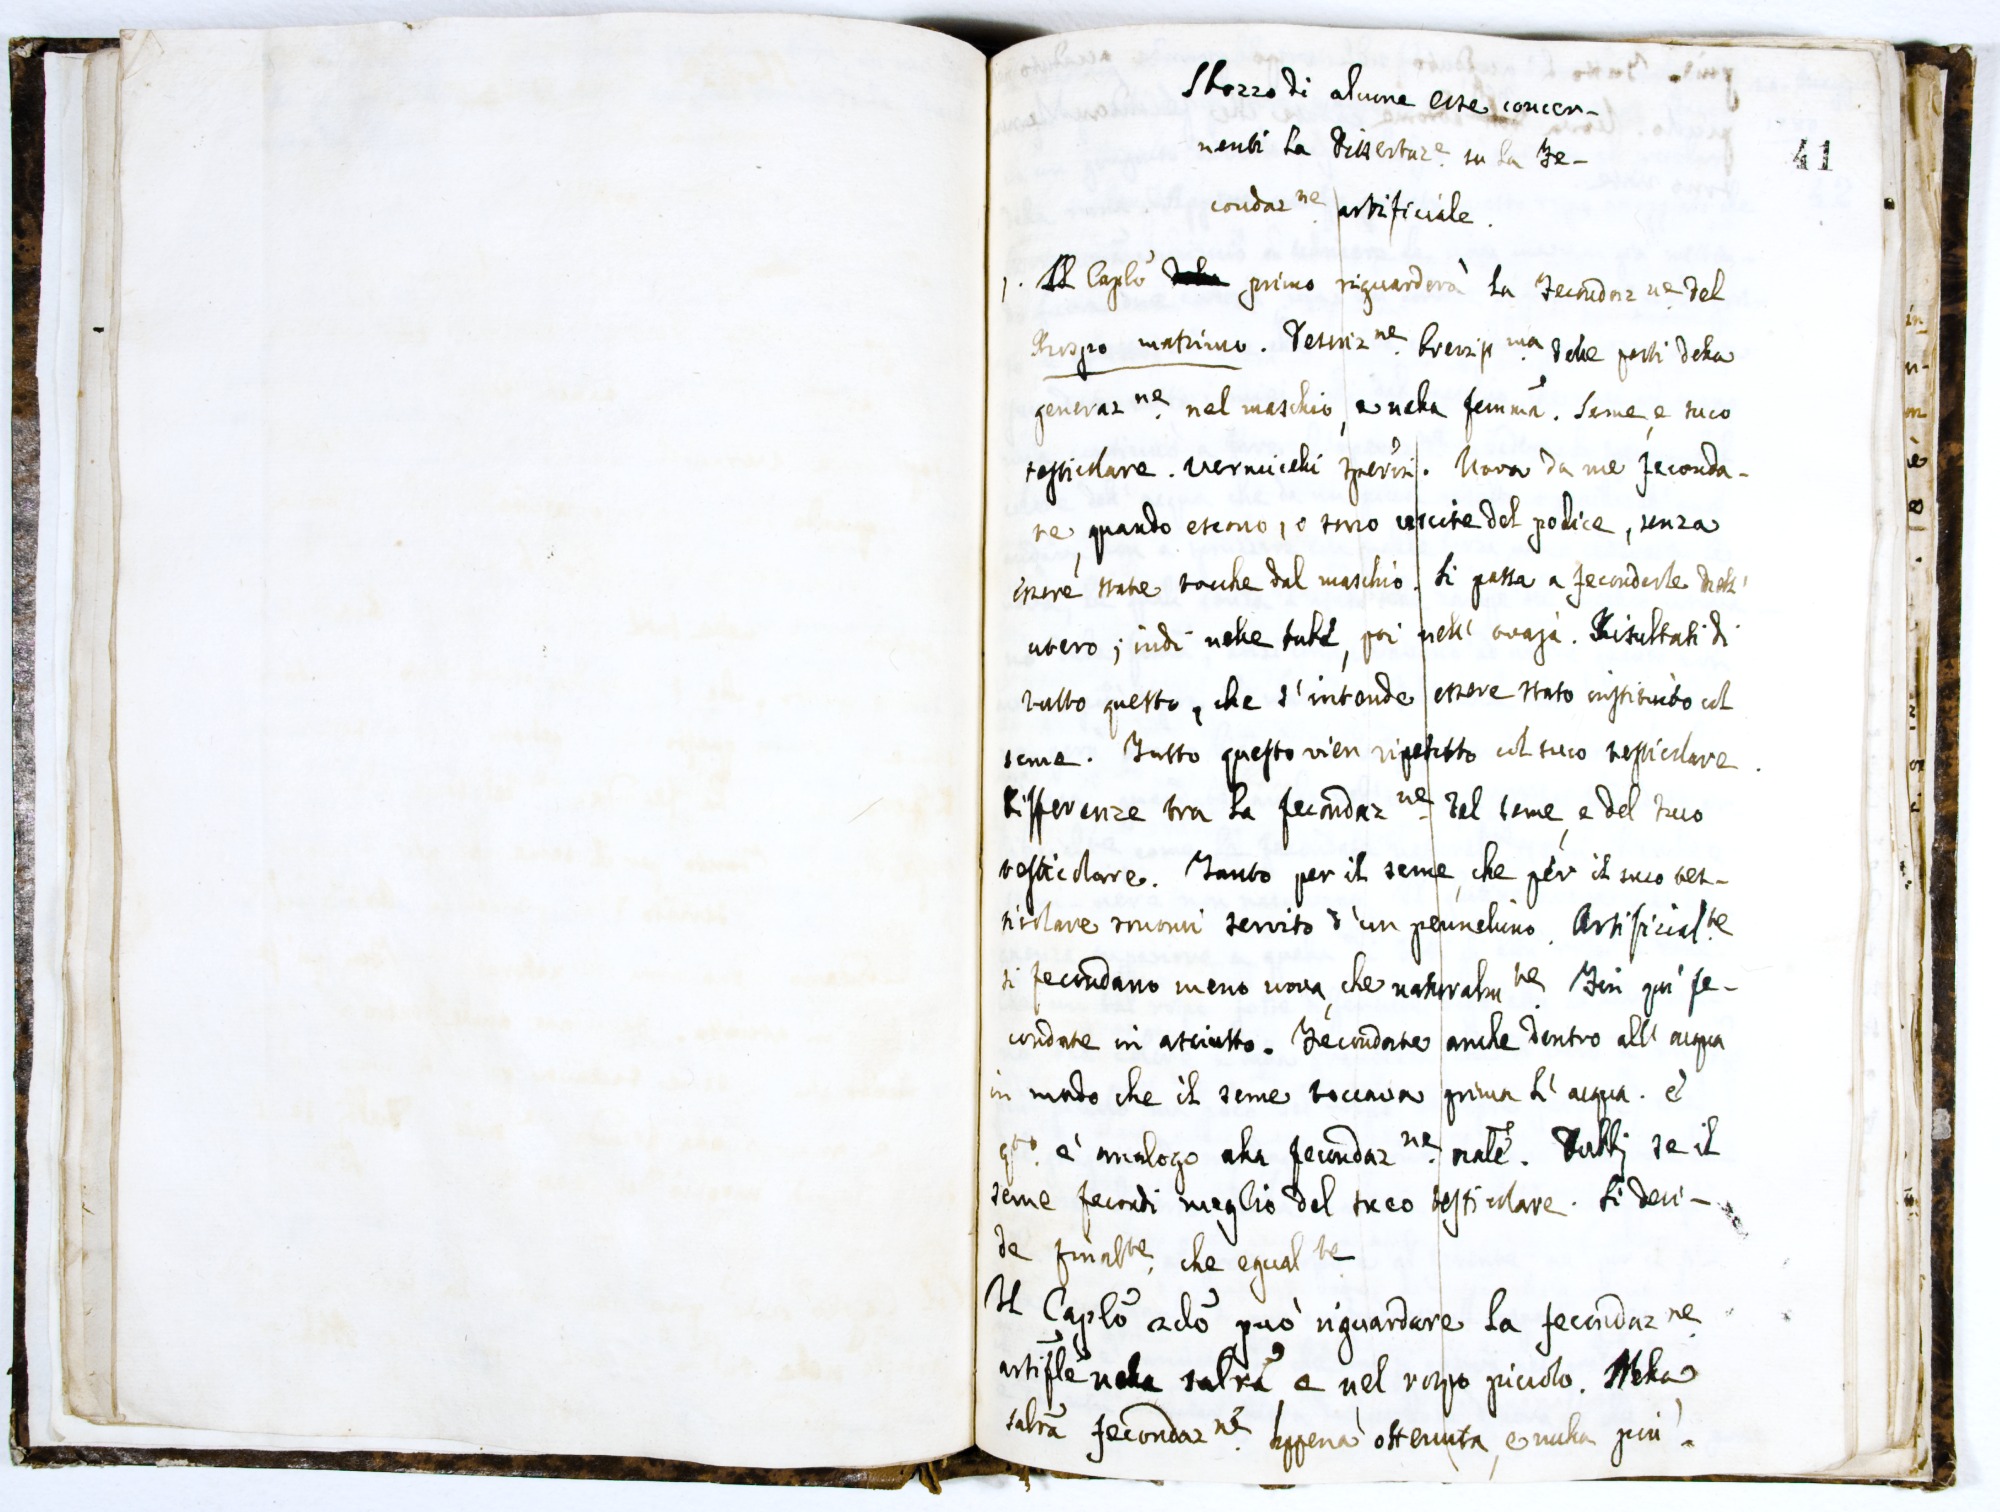 Sbozzo di alcune cose concer-
nenti la Dissertaz.e su la Fe-
condaz.ne artificiale.
41
1. Il Caplo primo riguarderà la Fecondaz.ne del
Rospo matrimo. Descriz.ne breviss.ma delle parti della
generaz.ne nel maschio, e nella femma. Seme, e suco
testicolare. Vermicelli sperm. Uova da me feconda-
te, quando escono, o sono uscite del podice, senza
essere state tocche dal maschio. Si passa a fecondarle dell'
utero; indi nelle tube, poi nell' ovaja. Risultati di
tutto questo, che s'intende essere stato instituito col
seme. Tutto questo vien ripetuto col suco testicolare.
Differenze tra la fecondaz.ne del seme, e del suco
testicolare. Tanto per il seme, che per il suco tes-
ticolare sonomi servito d'un pennellino. Artificial.te
si fecondano meno uova, che naturalm.te Fin quì fe-
condate in asciutto. Fecondate anche dentro all' acqua
in modo che il seme toccava prima l'acqua. E'
q.to è analogo alla fecondaz.ne nale. Dubbj se il
seme fecondi meglio del suco testicolare. Si deci-
de final.te, che egual.te
Il Caplo 2do può riguardare la fecondaz.ne
artifle nella salra e nel rospo piccolo. Nella
salra fecondaz.ne appena ottenuta, e nulla più.